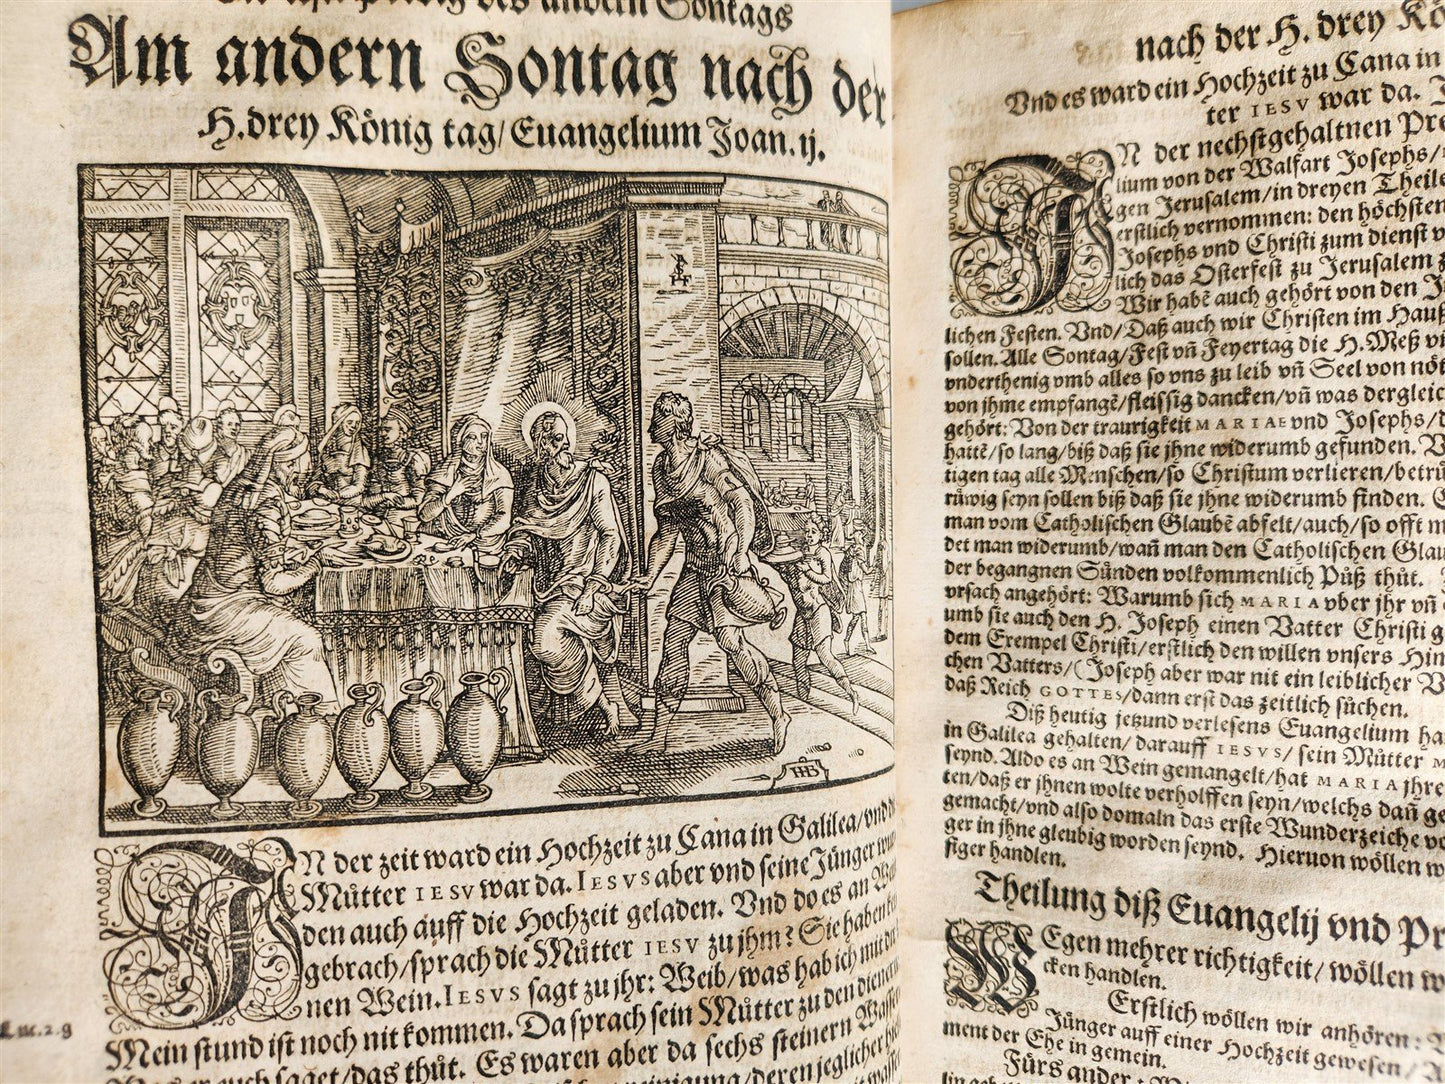 des andern Sontags
Am andern Sontag nach der
H. drey König tag/ Euangelium Joan. ij.
IN der zeit ward ein Hochzeit zu Cana in Galilea/ vnd die
Můtter IESV war da. IESVS aber vnd seine Jünger wur
den auch auff die Hochzeit geladen. Vnd do es an Wein
gebrach/ sprach die Můtter IESV zu jhm: Sie haben kei
nen Wein. IESVS sagt zu jhr: Weib/ was hab ich mit dir
Mein stund ist noch nit kommen. Da sprach sein Můtter zu den dienern
Was er euch saget/ das thůt. Es waren aber da sechs steinern Wasser
deren jeglicher
Luc. 2. g
nach der H. drey Kö
Vnd es ward ein Hochzeit zu Cana in
ter IESV war da.
IN der nechstgehaltnen Pre
lium von der Walfart Josephs/
gen Jerusalem/ in dreyen Theile
erstlich vernommen: den höchsten
Josephs vnd Christi zum dienst v
lich das Osterfest zu Jerusalem z
Wir habē auch gehört von den J
lichen Festen. Vnd/ Daß auch wir Christen im Hauß
sollen. Alle Sontag/ Fest vñ Feyertag die H. Meß vn
vnderthenig vmb alles so vns zu leib vñ Seel von nöt
von jhme empfangē/ fleissig dancken/ vñ was dergleic
gehört: Von der traurigkeit MARIAE vnd Josephs/
hattē/ so lang/ biß daß sie jhne widerumb gefunden. V
tigen tag alle Menschen/ so Christum verlieren/ betrü
rüwig seyn sollen biß daß sie jhne widerumb finden.
man vom Catholischen Glaubē abfelt/ auch/ so offt m
det man widerumb/ wañ man den Catholischen Glau
der begangnen Sünden volkommenlich Půß thůt.
vrsach angehört: Warumb sich MARIA vber jhr vñ
umb sie auch den H. Joseph einen Vatter Christi g
dem Exempel Christi/ erstlich den willen vnsers Him
chen Vatters/ (Joseph aber war nit ein leiblicher V
daß Reich GOTTES/ dann erst das zeitlich sůchen.
Diß heutig jetzund verlesens Euangelium ha
in Galilea gehalten/ darauff IESVS/ sein Můtter M
seynd. Aldo es an Wein gemangelt/ hat MARIA jhre
ten/ daß er jhnen wolte verholffen seyn/ welchs dañ ge
gemacht/ vnd also domaln das erste Wunderzeiche vo
ger in jhne gleubig worden seynd. Hieruon wöllen w
siger handlen.
Theilung diß Euangelij vnd Pr
WEgen mehrer richtigkeit/ wöllen w
cken handlen.
Erstlich wöllen wir anhören:
Jünger auff einer Hochzeit gewesen/
ment der Ehe in gemein.
Fürs ander: